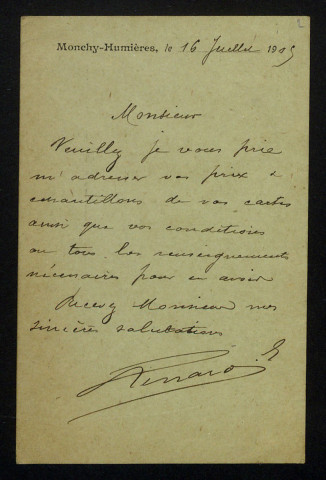 Monchy-Humières, le 16 Juillet 1905
Monsieur
Veuilly je vous prie
m'adresser vos prix &
echantillons de vos cartes
ainsi que vos conditions
ou tous les renseignements
nécessaires pour en avoir
Recevez Monsieur mes
sincères salutations